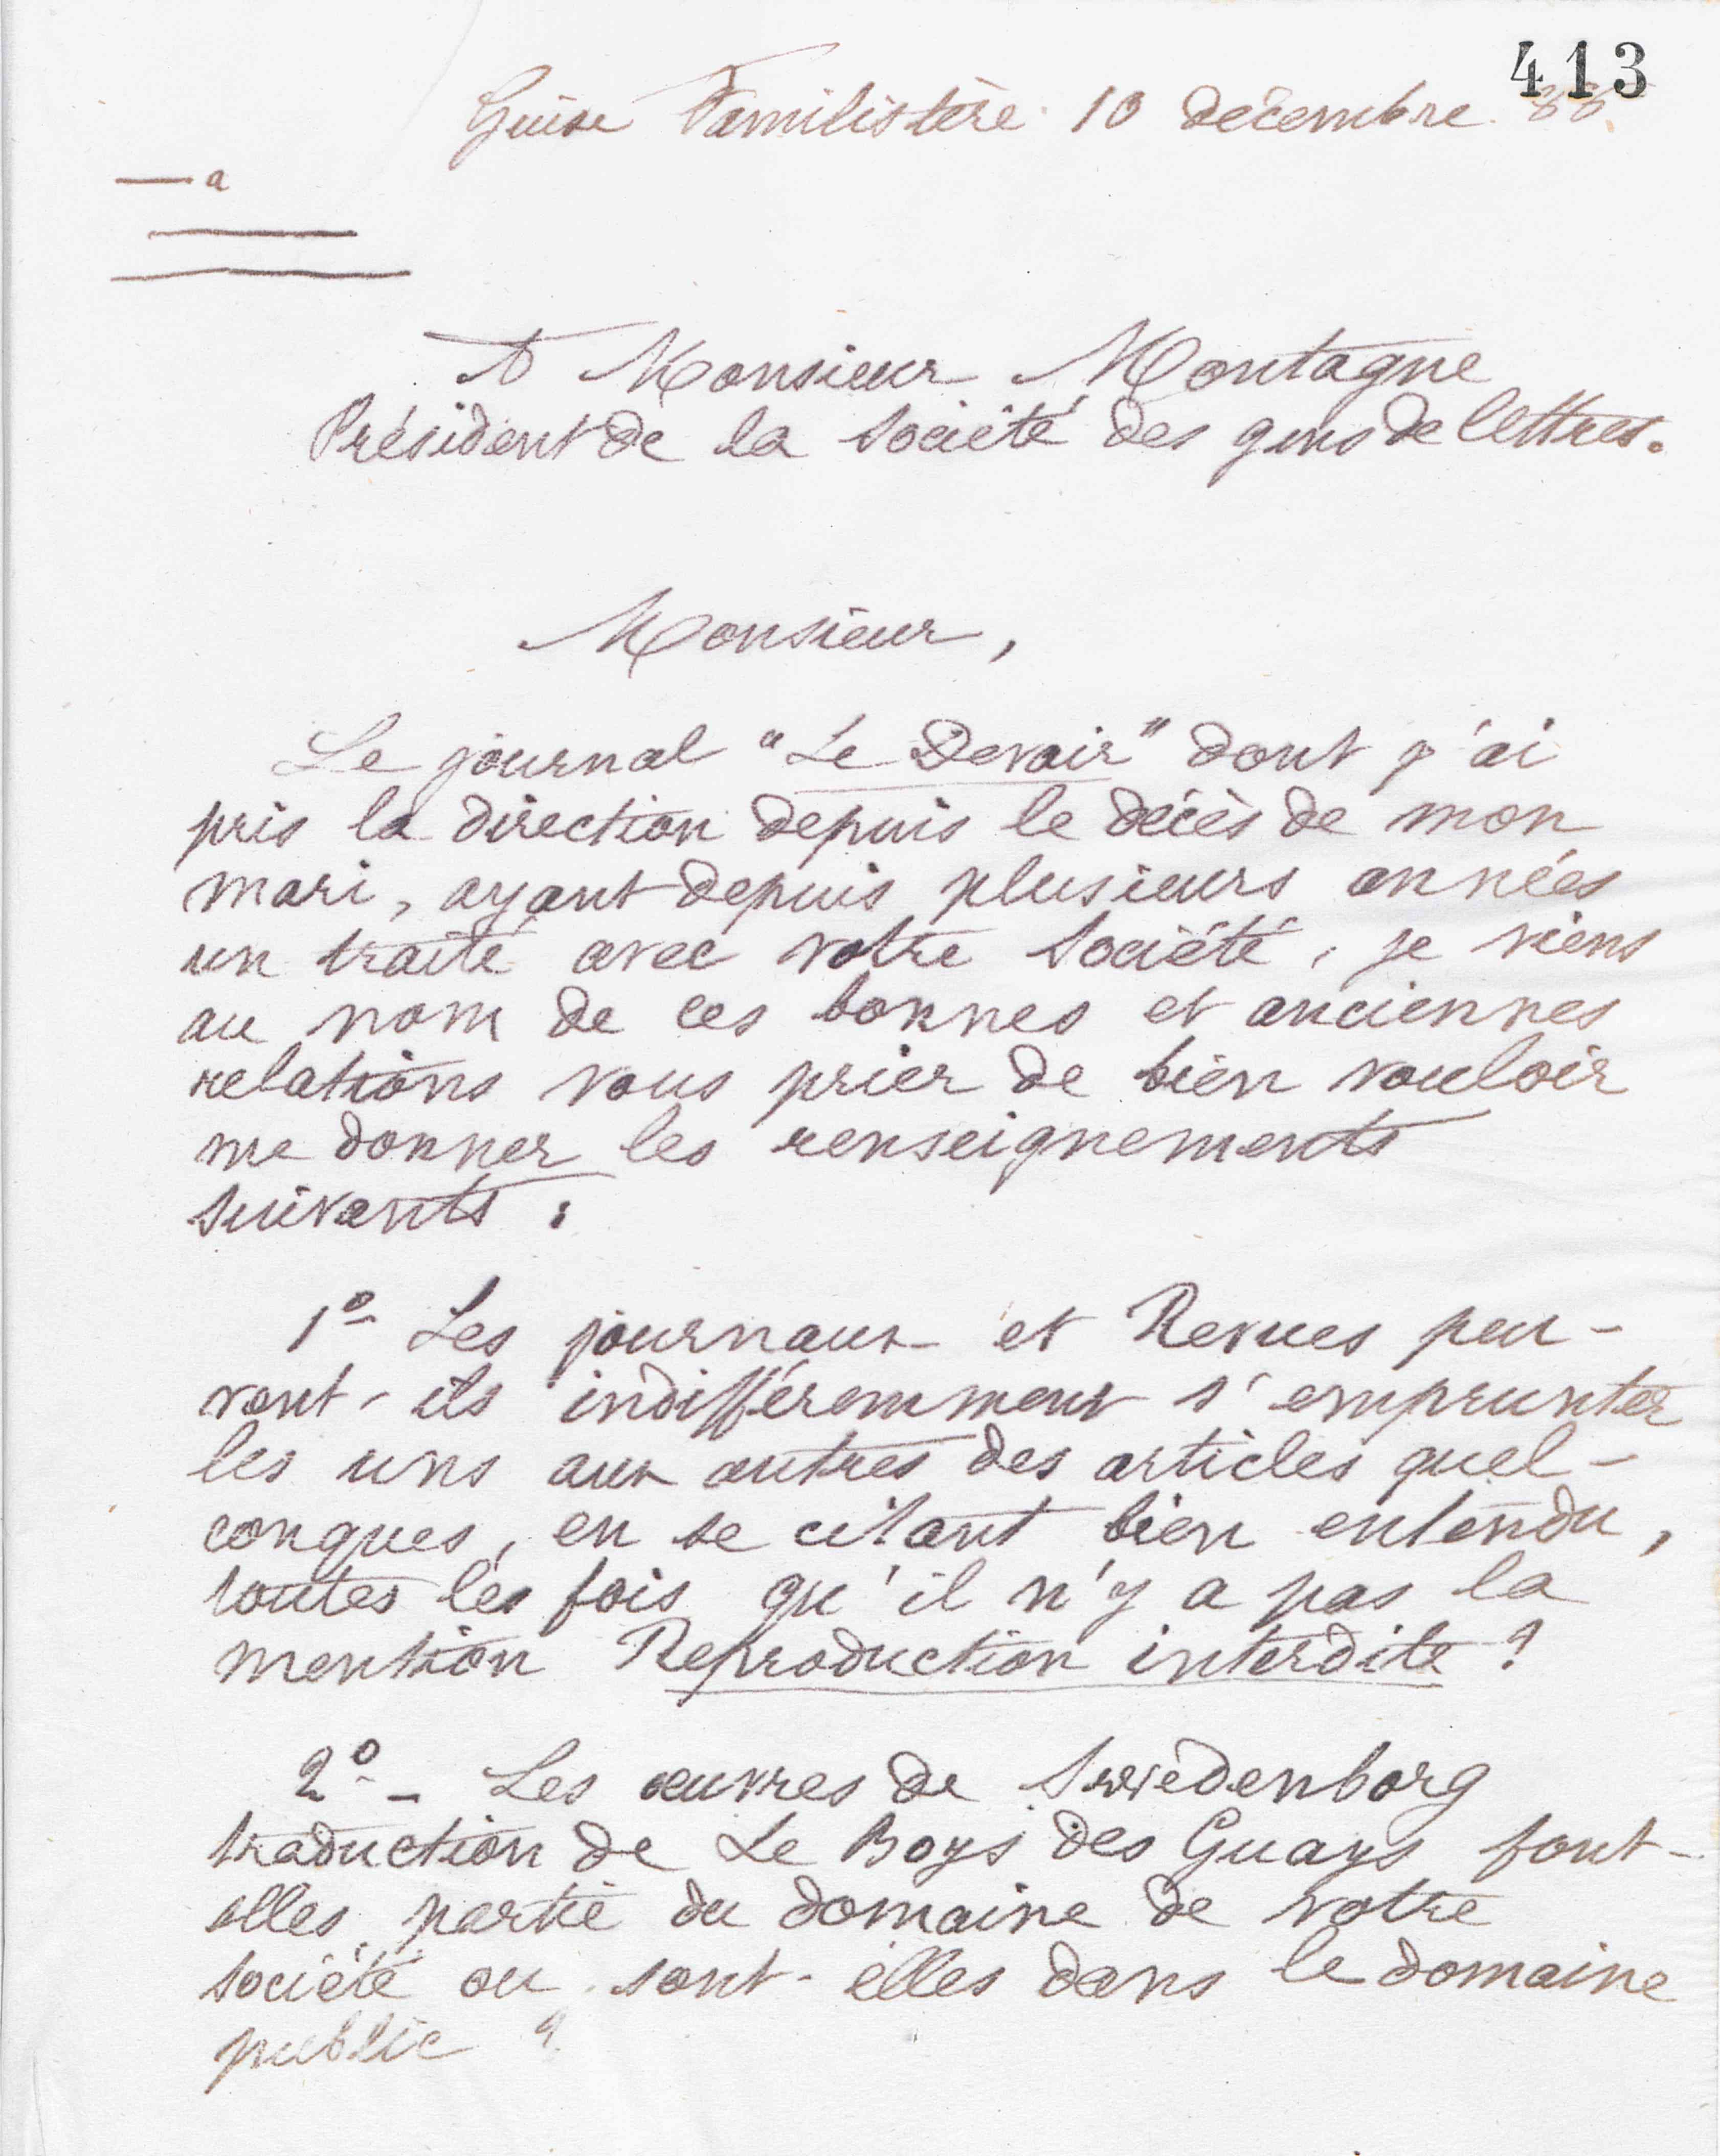 413
Guise Familistère 10 décembre 88
a
A Monsieur Montagne
Président de la Société des gens de lettres.
Monsieur,
Le journal "Le Devoir" dont j'ai
pris la direction depuis le décès de mon
mari, ayant depuis plusieurs années
un traité avec votre Société, je viens
au nom de ces bonnes et anciennes
relations vous prier de bien vouloir
me donner les renseignements
suivants :
1º Les journaux et Revues peu-
vent-ils indifféremment s'emprunter
les uns aux autres des articles quel-
conques, en se citant bien entendu,
toutes les fois qu'il n'y a pas la
mention Reproduction interdite ?
2º - Les œuvres de Swiedenborg
traduction de Le Boys des Guays font-
elles partie du domaine de votre
société ou sont-elles dans le domaine
public ?